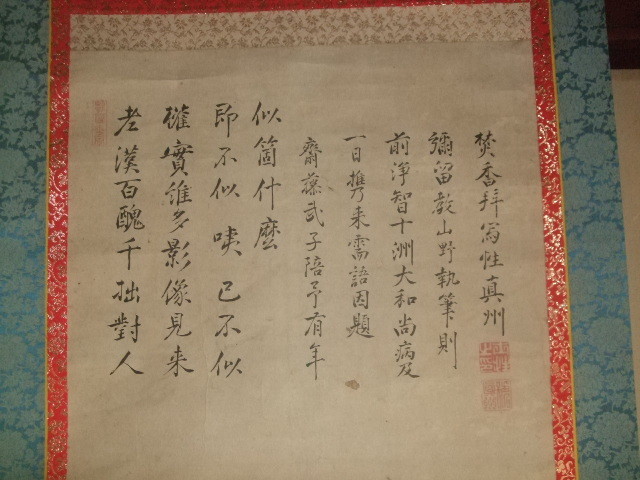 老漢百醜千拙對人
權實雖多影像見来
即不似咦已不似
似箇什麼
齋藤武子陪予有年
一日携来需語因題
前淨智十洲大和尚病及
彌留教山野執筆則
焚香拜写性真州